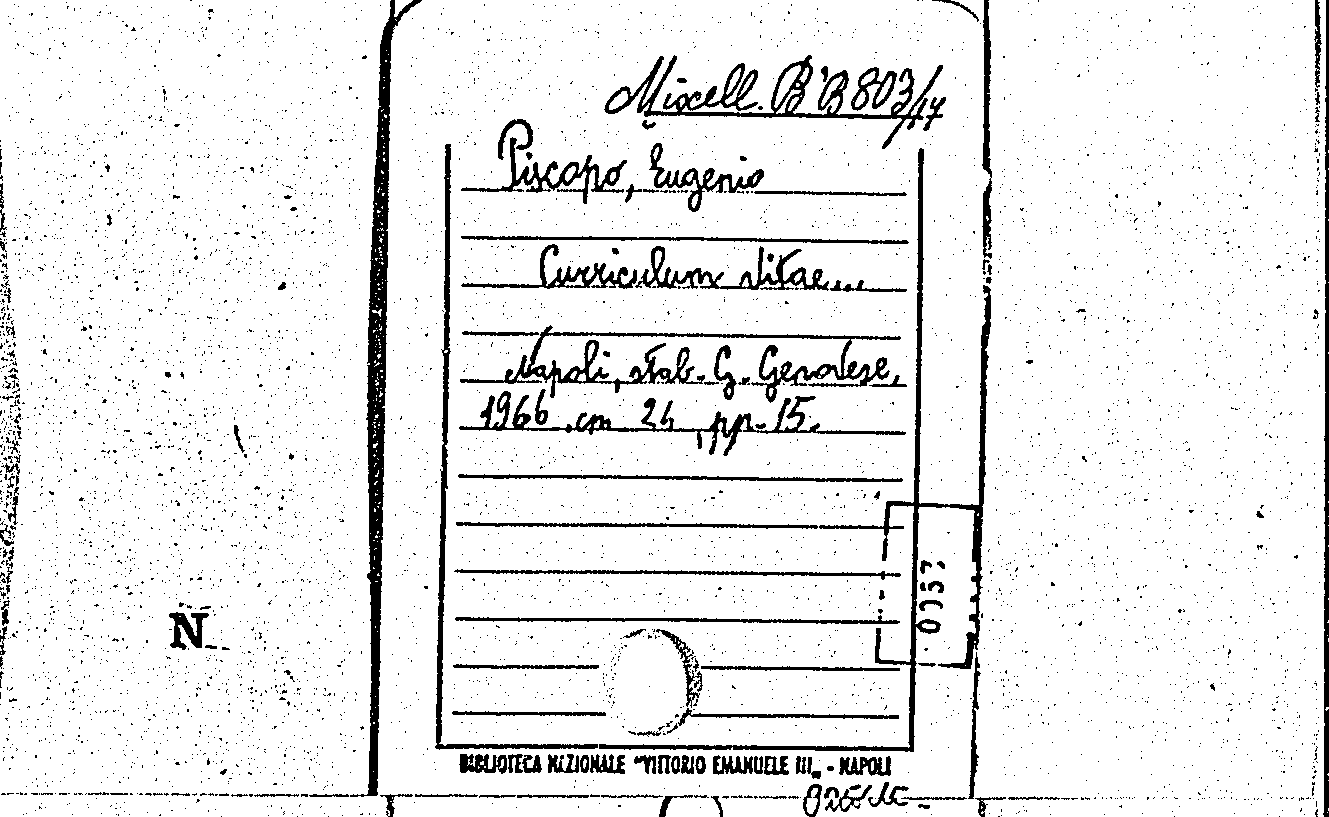 Miscell. B'B 803/17
Piscopo, Eugenio
Curriculum vitae...
Napoli, stab. G. Genovese,
1966 .cm 24, pp. 15.
0057
N
BIBLIOTECA NAZIONALE "VITTORIO EMANUELE III„ - NAPOLI